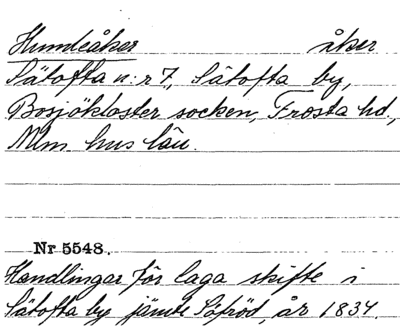 Humleåker åker
Sätofta n:r 7, Sätofta by,
Bosjökloster socken, Frosta hd.,
Mlm hus län.
Nr 5548.
Handlingar för laga skifte i
Sätofta by jämte Söfröd, år 1834.